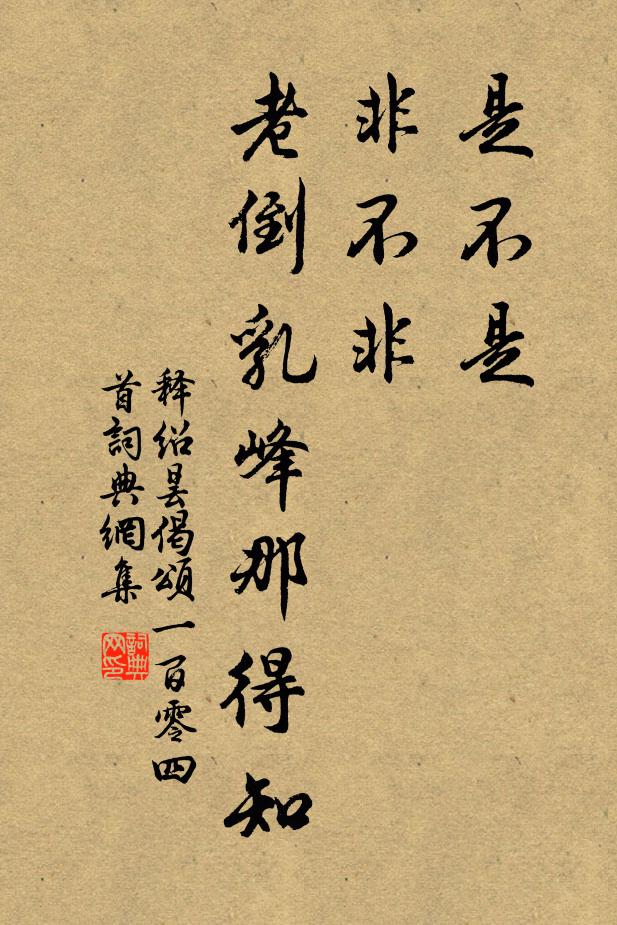 是不是
非不非
老倒乳峰那得知
释绍昙偈頌一百零四
首詞典網集
詞典
网印